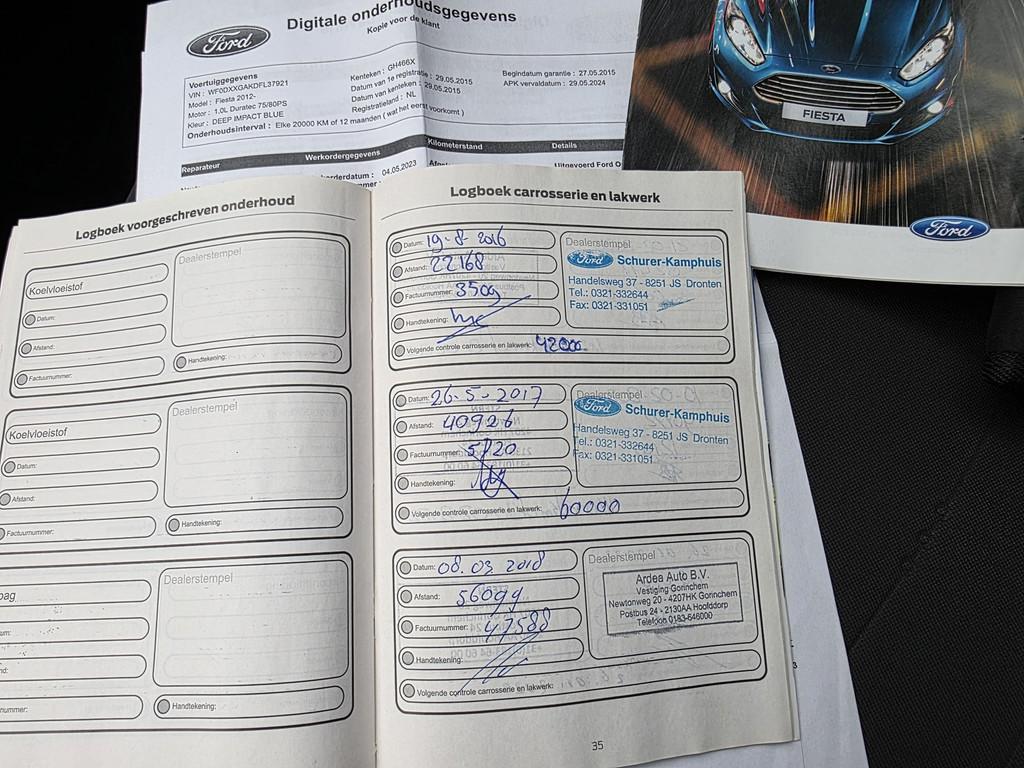 Ford
Digitale onderhoudsgegevens
Kopie voor de klant
Voertuiggegevens
VIN : WF0DXXGAKDFL37921
Model : Fiesta 2012-
Motor : 1.0L Duratec 75/80PS
Kleur : DEEP IMPACT BLUE
Onderhoudsinterval : Elke 20000 KM of 12 maanden ( wat het eerst voorkomt )
Kenteken : GH466X
Datum van 1e registratie : 29.05.2015
Datum van kenteken : 29.05.2015
Registratieland : NL
Begindatum garantie : 27.05.2015
APK vervaldatum : 29.05.2024
Reparateur Werkordergegevens Kilometerstand Details
rderdatum : 04.05.2023
Uitgevoerd Ford O
FIESTA
Ford
Logboek voorgeschreven onderhoud
Koelvloeistof
Datum:
Afstand:
Factuurnummer:
Dealerstempel
Handtekening:
Koelvloeistof
Datum:
Afstand:
Factuurnummer:
Dealerstempel
Handtekening:
bag
um:
nd:
nummer:
Dealerstempel
Handtekening:
Logboek carrosserie en lakwerk
Datum: 19-8-2016
Afstand: 22168
Factuurnummer: 3509
Handtekening:
Volgende controle carrosserie en lakwerk: 42000
Dealerstempel
Ford Schurer-Kamphuis
Handelsweg 37 - 8251 JS Dronten
Tel.: 0321-332644
Fax: 0321-331051
Datum: 26-5-2017
Afstand: 40926
Factuurnummer: 5120
Handtekening:
Volgende controle carrosserie en lakwerk: 60000
Dealerstempel
Ford Schurer-Kamphuis
Handelsweg 37 - 8251 JS Dronten
Tel.: 0321-332644
Fax: 0321-331051
Datum: 08.03 2018
Afstand: 56099
Factuurnummer: 47588
Handtekening:
Volgende controle carrosserie en lakwerk:
Dealerstempel
Ardea Auto B.V.
Vestiging Gorinchem
Newtonweg 20 - 4207HK Gorinchem
Postbus 24 - 2130AA Hoofddorp
Telefoon 0183-646000
35